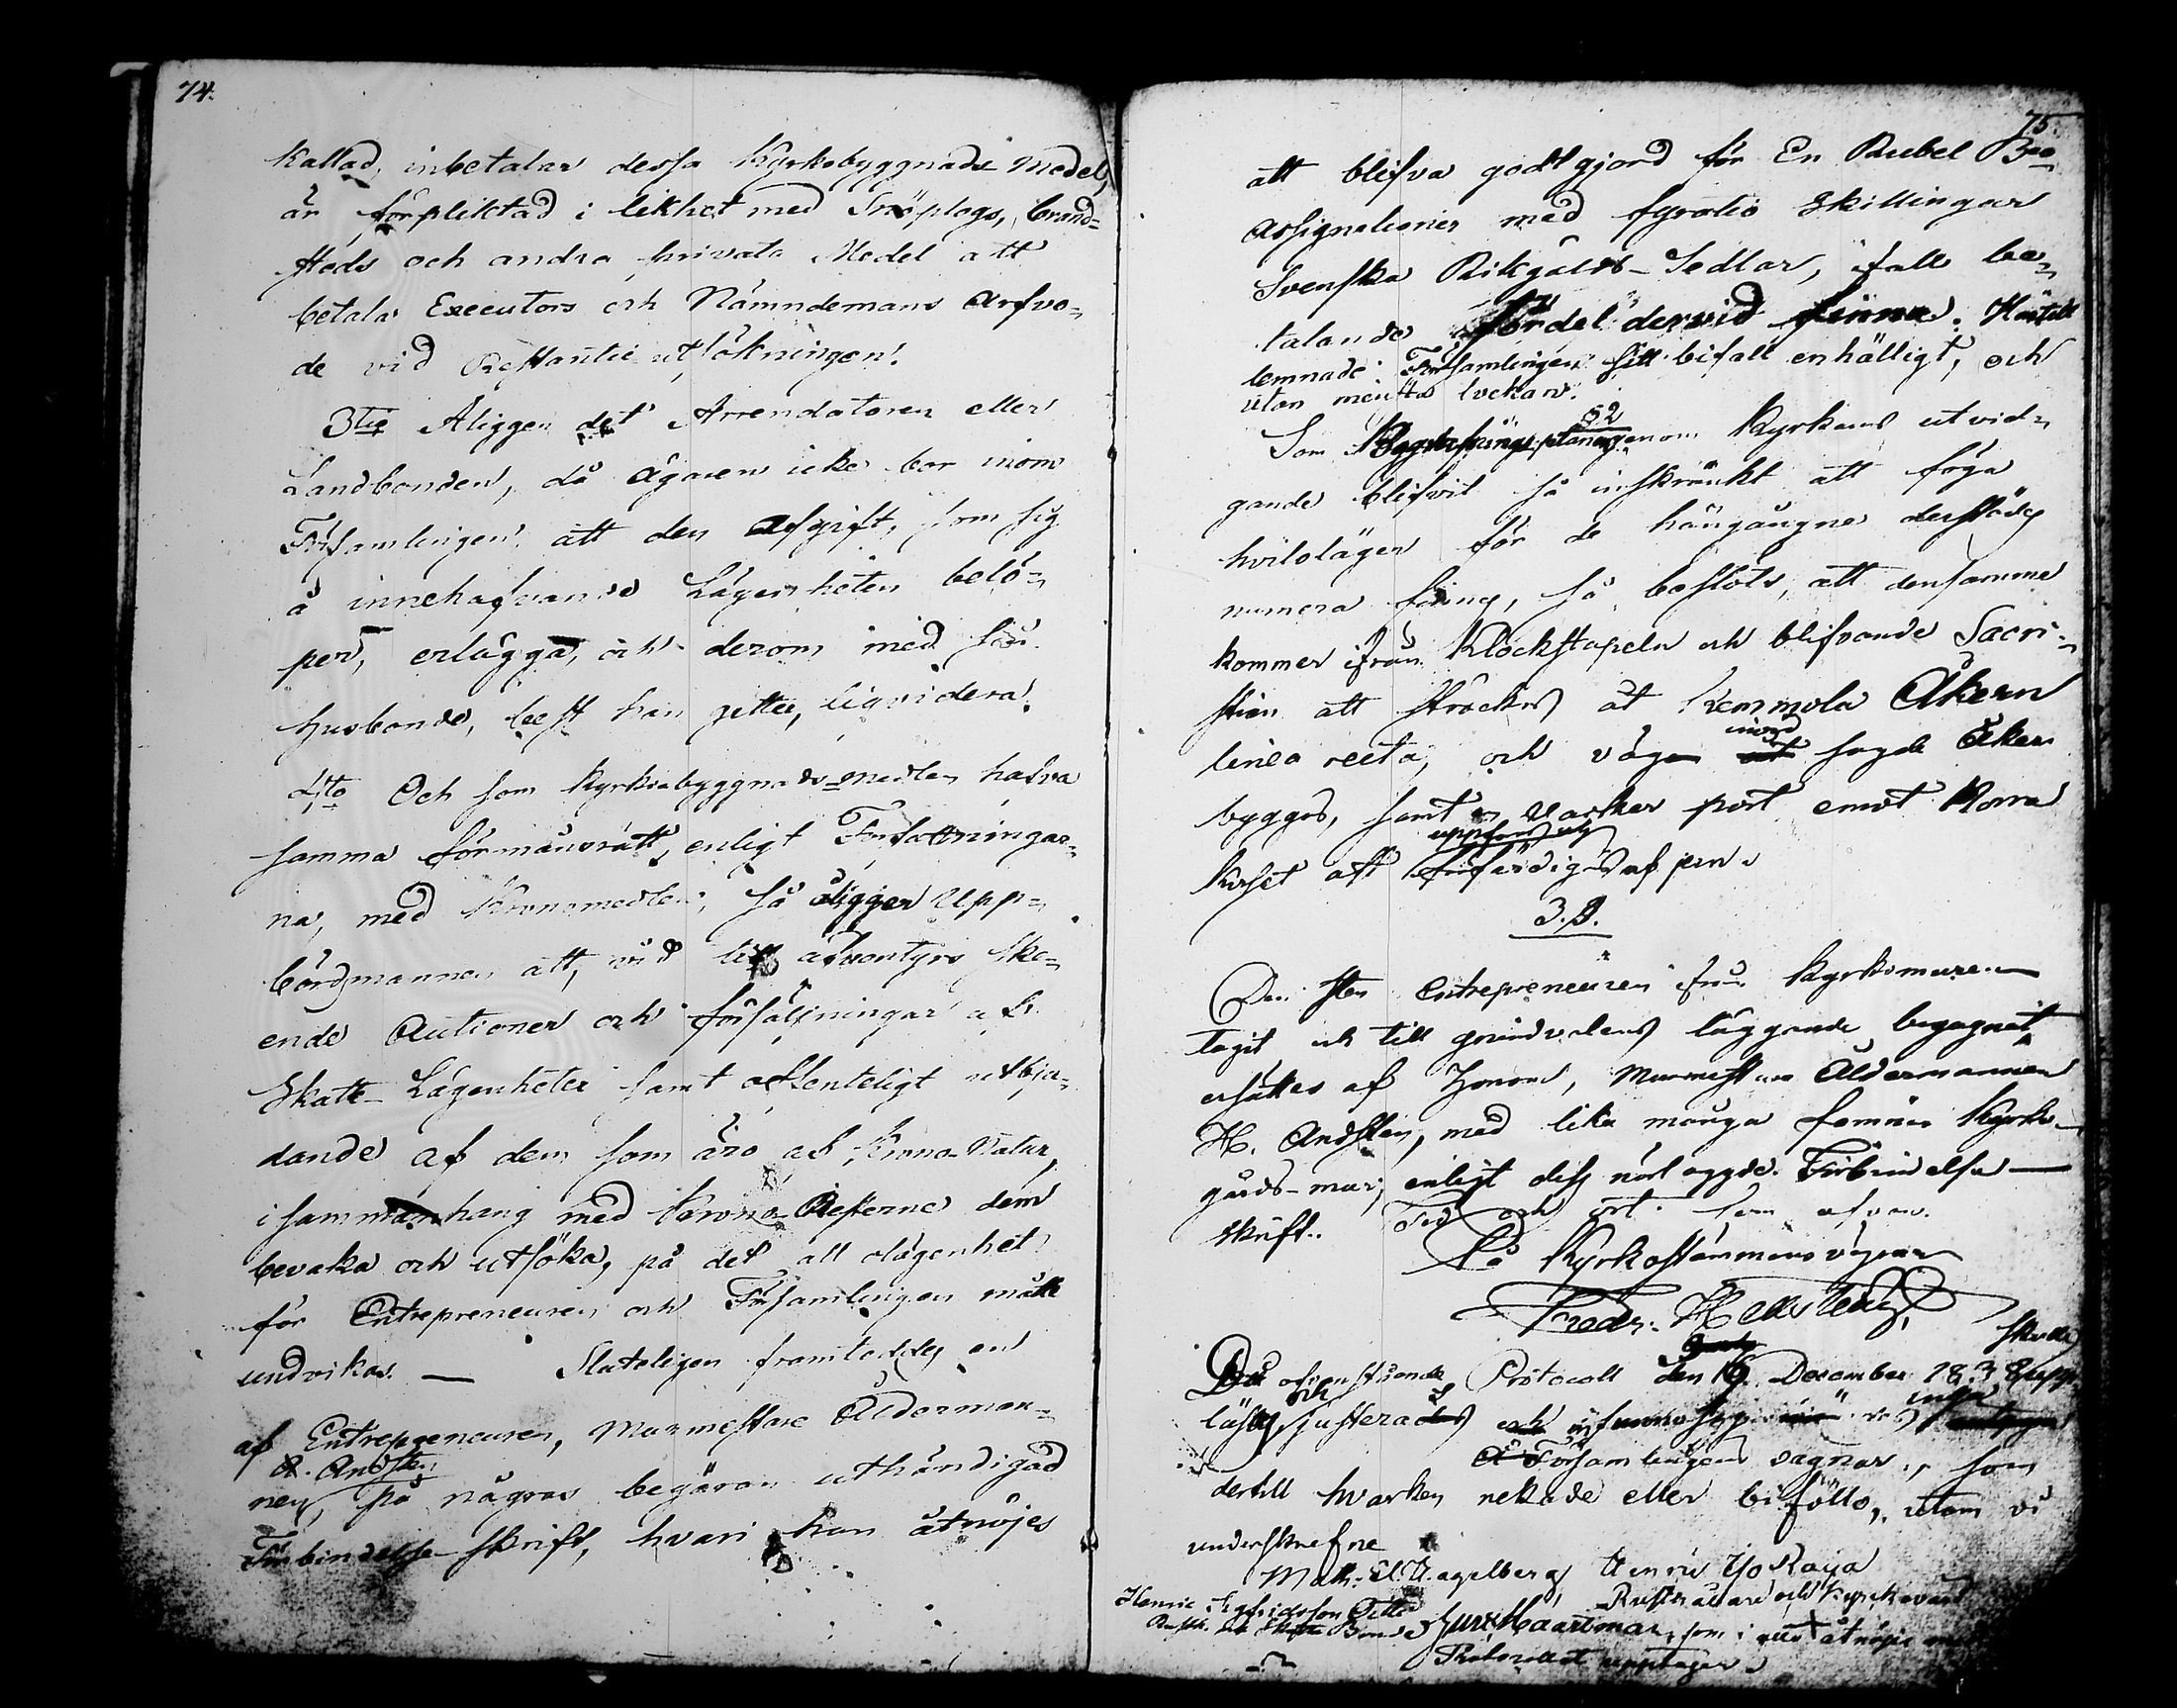 74.
Kallad, inbetalar dessa Kyrkobyggnads-Medel,
är förpliktad i likhet med Snöplogs, brand-
stods och andra privata Medel att
betala Executors och Nämndemans Arfvo-
de vid Restantie utsökningen.
3tio Åligger det Arrendatoren eller
Landbonden, då Ägaren icke bor inom
Församlingen, att den Afgift, som sig
å innehafvande Lägenheten belö-
per, erlägga, och derom med sin
husbonde, best han gitter, liqvidera.
4to Och som Kyrkobyggnads-medlen hafva
samma förmånsrätt, enligt Författningar-
na, med Kronomedlen, så åligger Upp-
bördsmannen att, vid till äfventyrs ske-
ende Auctioner och försäljningar af
Skatte-Lägenheter samt offenteligt utbju-
dande af dem som äro af Krono-Natur,
i sammanhang med Krono-Resterne dem
bevaka och utsöka, på det all olägenhet
för Entrepreneuren och Församlingen måtte
undvikas. — Slutligen framteddes en
af Entrepreneuren, Murmestare Ålderman-
A. Andsten
nen, på någras begäran uthändigad
Förbindelse-skrift, hvari han åtnöjes
75.
att blifva godtgjord för En Rubel Bco
Assignationer med fyratio Skillingar
Svenska Riksgälds-Sedlar, ifall be-
talande fördel dervid finna.
lemnade Församlingen sitt bifall enhälligt, och
utan
§2
Som Begrafningsplanen genom Kyrkans utvid-
gande blifvit så inskränkt att föga
hviloläger för de hängångne derstädes
numera finnes, så beslöts, att densamma
kommer ifrån Klockstapeln och blifvande Sacri-
stian att sträckas åt Kemmola Åkern
linea recta, och vägen
invid
åt sagde Åker
byggas, samt en vacker port emot Norra
uppföras och
huset att
3.§.
Den sten Entrepreneuren från Kyrkomuren
tagit och till grundvalens läggande begagnat,
ersättes af honom, Murmestare Åldermannen
H. Andsten, med lika många famnar Kyrko-
gårds-mur, enligt dess utlagde Förbindelse-
skrift. Tid och ort som ofvan.
På Kyrkostämmans vägnar
Fredr. Hellsten
Det ofvanstående Protocoll den 16 December 1838
lästes, justerades och
å Församlingens vägnar, som
dertill hvarken nekade eller biföllo, utom vi
underskrefne
Math. El. Hagelberg Henric Yo Raya
Henric Sigfridsson Rusthållare och Kyrkovärd
Jurx Haartman, som i allt åtnöjes med
Protocollet upptager.